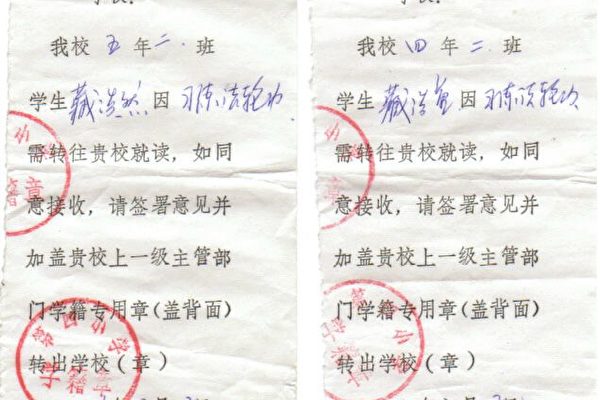 我校五年二班
学生藏浩然因习练法轮功
需转往贵校就读，如同
意接收，请签署意见并
加盖贵校上一级主管部
门学籍专用章(盖背面)
转出学校(章)
我校四年二班
学生藏浩因习练法轮功
需转往贵校就读，如同
意接收，请签署意见并
加盖贵校上一级主管部
门学籍专用章(盖背面)
转出学校(章)